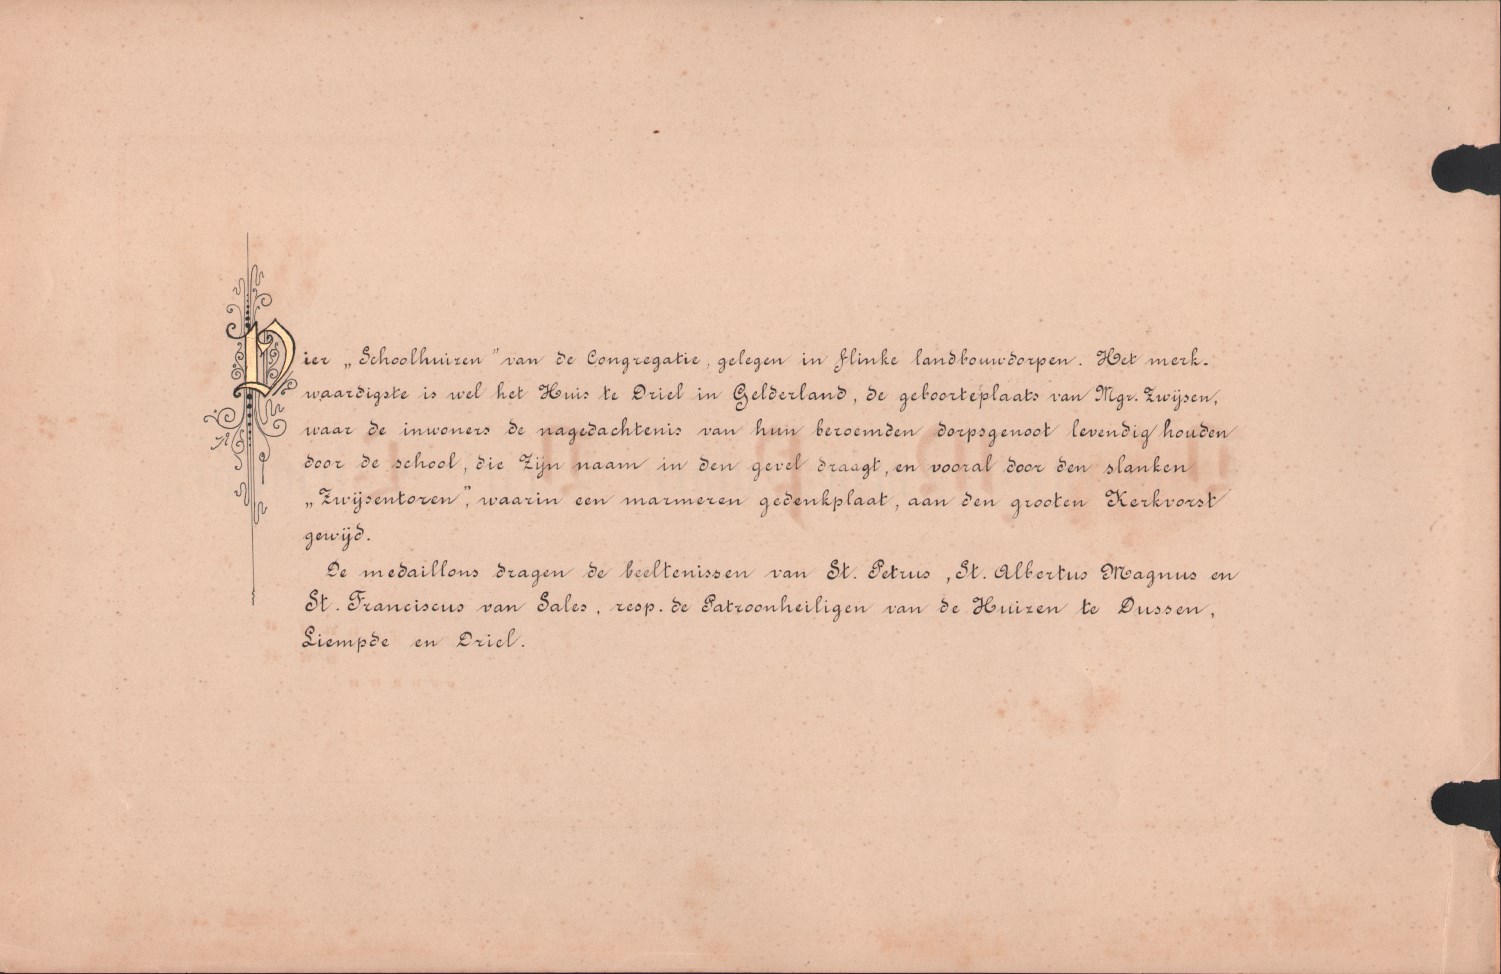 Vier „Schoolhuizen” van de Congregatie, gelegen in flinke landbouwdorpen. Het merk-
waardigste is wel het Huis te Driel in Gelderland, de geboorteplaats van Mgr. Zwijsen,
waar de inwoners de nagedachtenis van hun beroemden dorpsgenoot levendig houden
door de school, die Zijn naam in den gevel draagt, en vooral door den slanken
„Zwijsentoren”, waarin een marmeren gedenkplaat, aan den grooten Kerkvorst
gewijd.
De medaillons dragen de beeltenissen van St. Petrus, St. Albertus Magnus en
St. Franciscus van Sales, resp. de Patroonheiligen van de Huizen te Dussen,
Liempde en Driel.